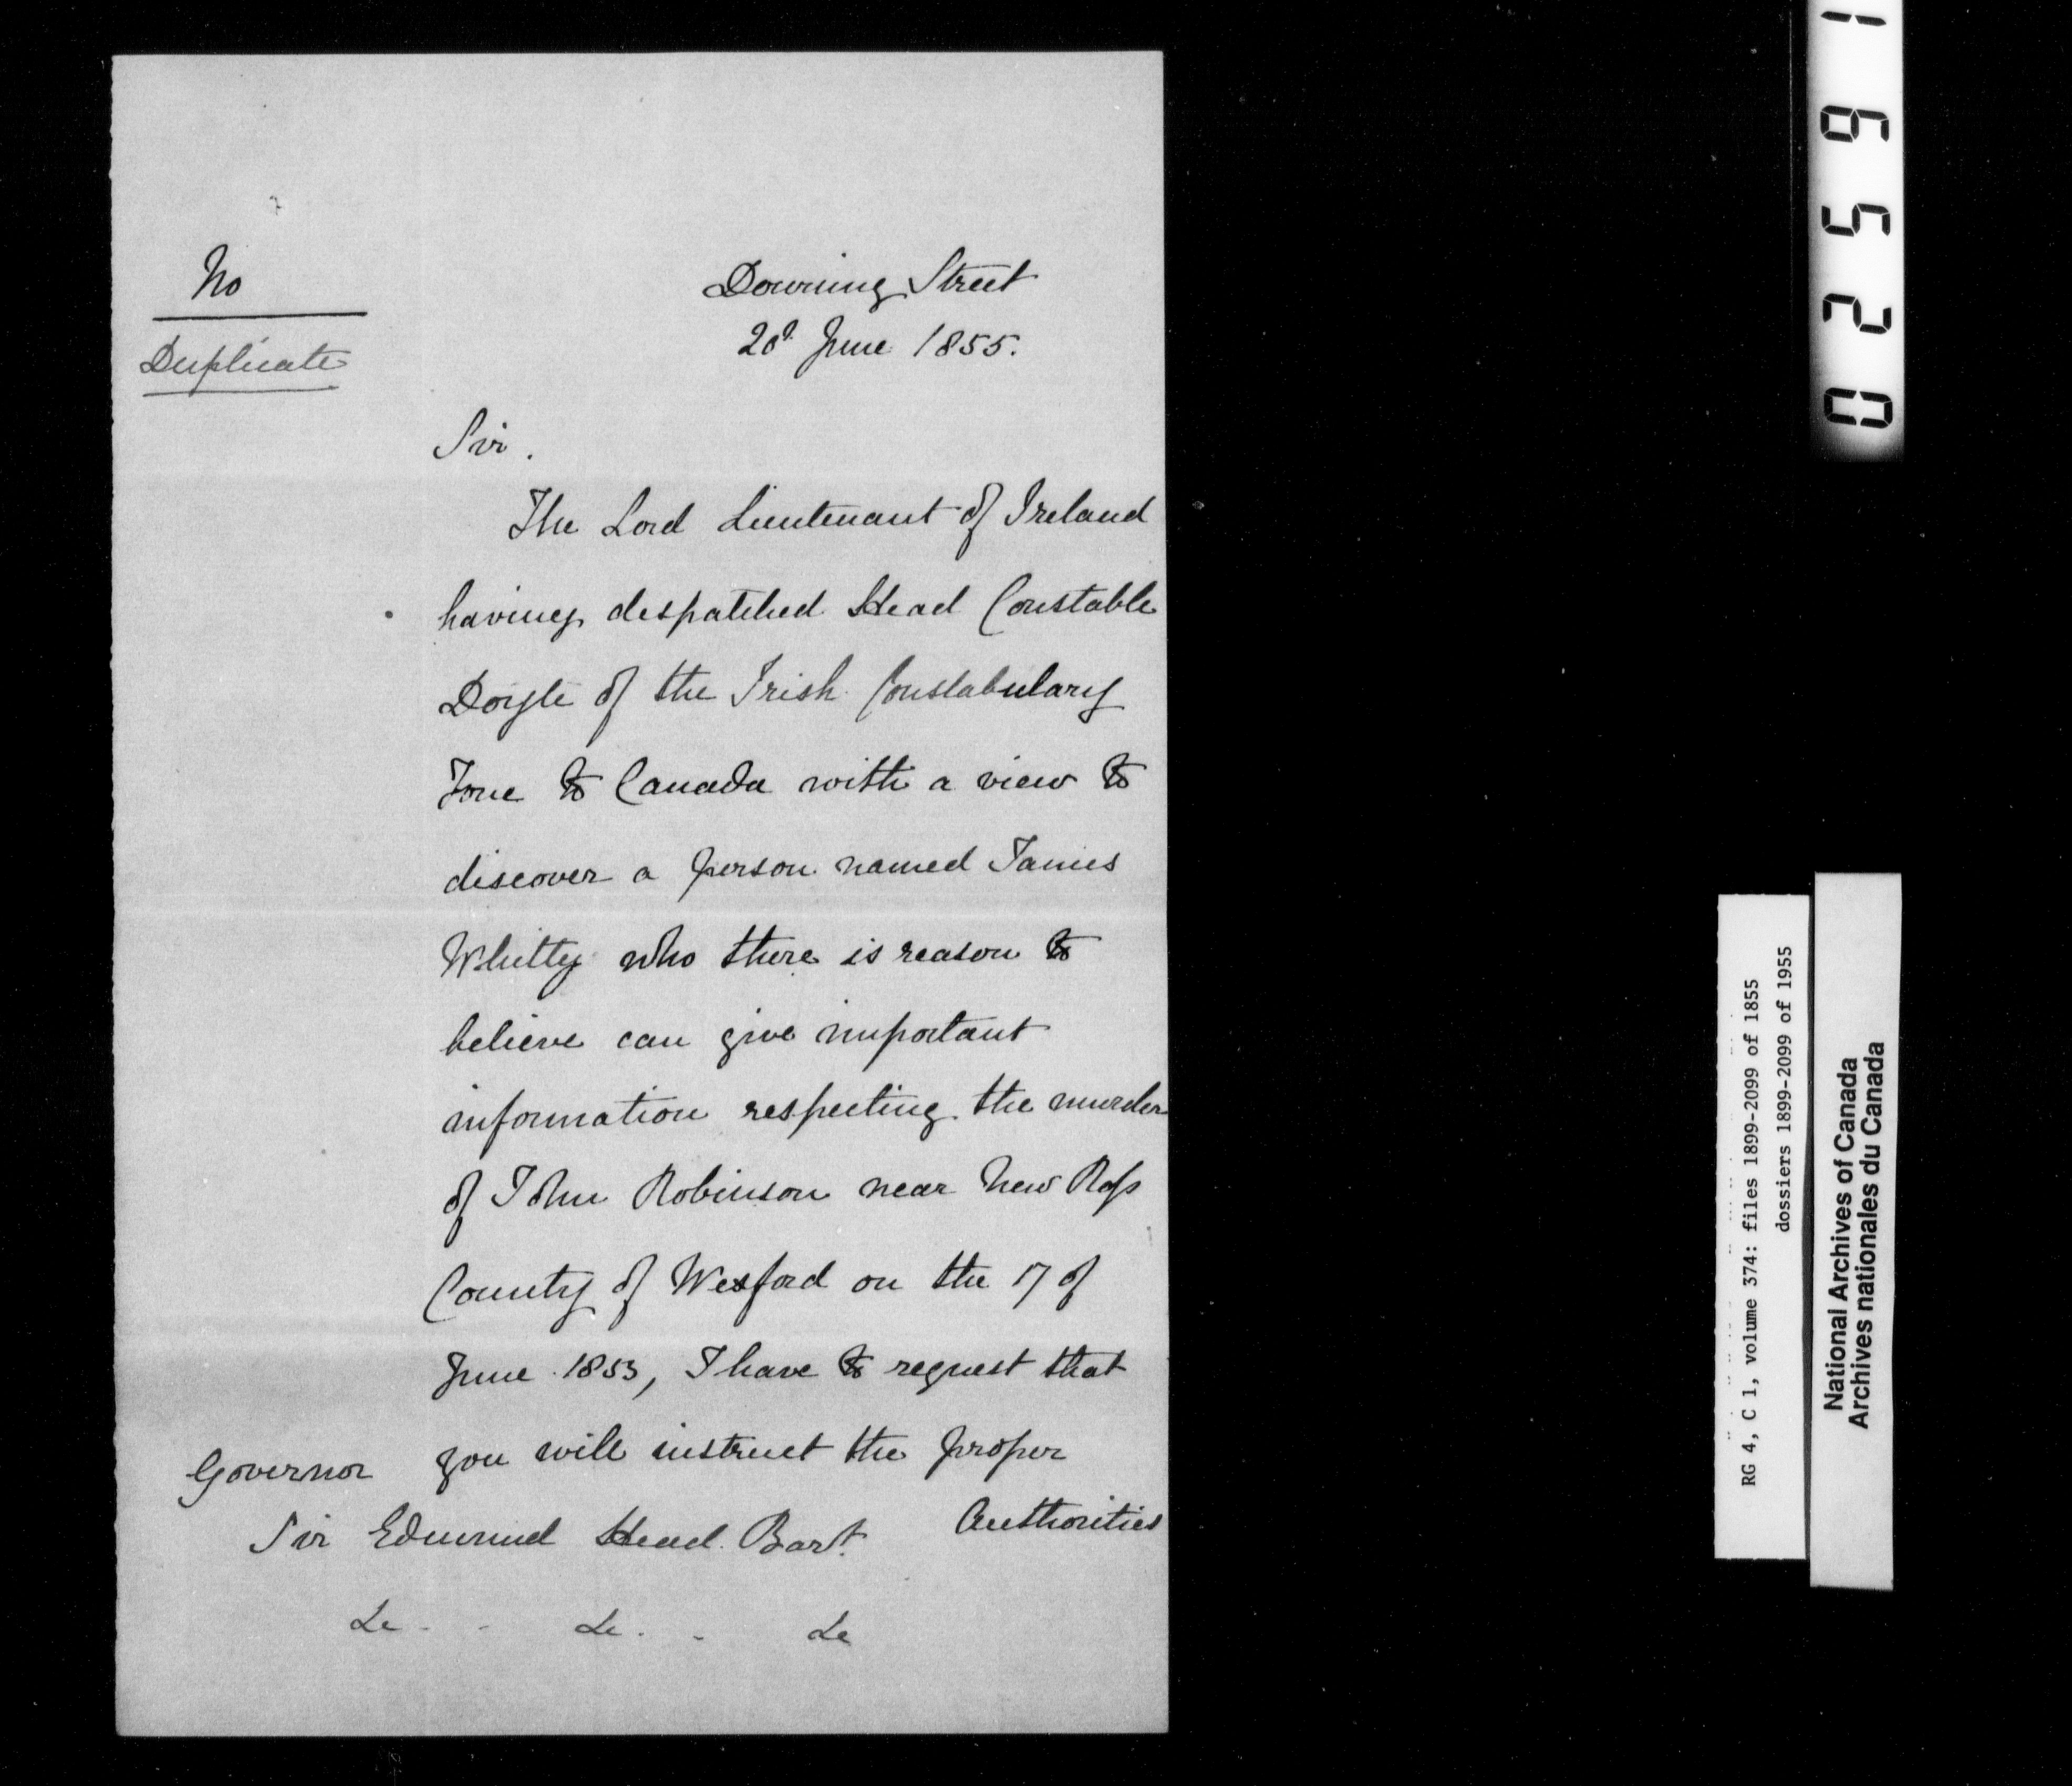 No
Duplicate
Downing Street
20th June 1855.
Sir.
The Lord Lieutenant of Ireland
having despatched Head Constable
Doyle of the Irish Constabulary
Force to Canada with a view to
discover a person named James
Whitty who there is reason to
believe can give important
information respecting the murder
of John Robinson near New Ross
County of Wexford on the 17 of
June 1853, I have to request that
you will instruct the proper
Authorities
Governor
Sir Edmund Head Bart.
&c - - &c. - &c
02591
RG 4, C 1, volume 374: files 1899-2099 of 1855
dossiers 1899-2099 of 1955
National Archives of Canada
Archives nationales du Canada